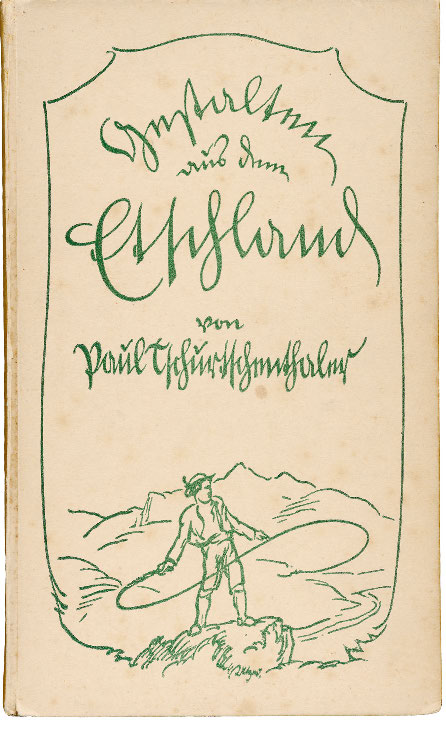 Gestalten
aus dem
Etschland
von
Paul Tschurtschenthaler